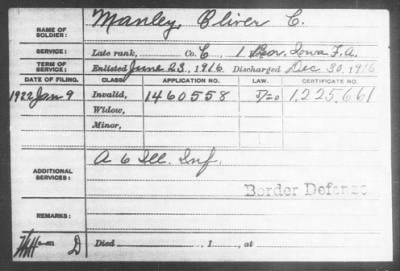 NAME OF SOLDIER: Manley, Oliver C.
SERVICE: Late rank, Co. C 1 Iowa F. A.
TERM OF SERVICE: Enlisted June 23, 1916 Discharged Dec 30, 1916
DATE OF FILING. CLASS. APPLICATION NO. LAW. CERTIFICATE NO.
1922 Jan 9 Invalid, 1460558 1,225,661
Widow,
Minor,
ADDITIONAL SERVICES: A 6 Ill. Inf.
Border Defense
REMARKS:
D Died , 1 , at